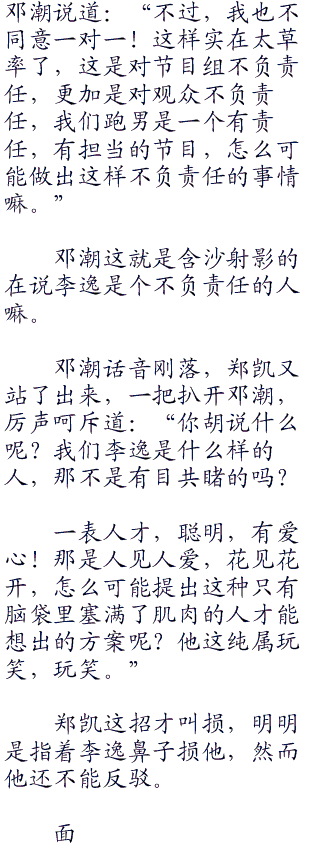 邓潮说道：“不过，我也不
同意一对一！这样实在太草
率了，这是对节目组不负责
任，更加是对观众不负责
任，我们跑男是一个有责
任，有担当的节目，怎么可
能做出这样不负责任的事情
嘛。”
邓潮这就是含沙射影的
在说李逸是个不负责任的人
嘛。
邓潮话音刚落，郑凯又
站了出来，一把扒开邓潮，
厉声呵斥道：“你胡说什么
呢？我们李逸是什么样的
人，那不是有目共睹的吗？
一表人才，聪明，有爱
心！那是人见人爱，花见花
开，怎么可能提出这种只有
脑袋里塞满了肌肉的人才能
想出的方案呢？他这纯属玩
笑，玩笑。”
郑凯这招才叫损，明明
是指着李逸鼻子损他，然而
他还不能反驳。
面